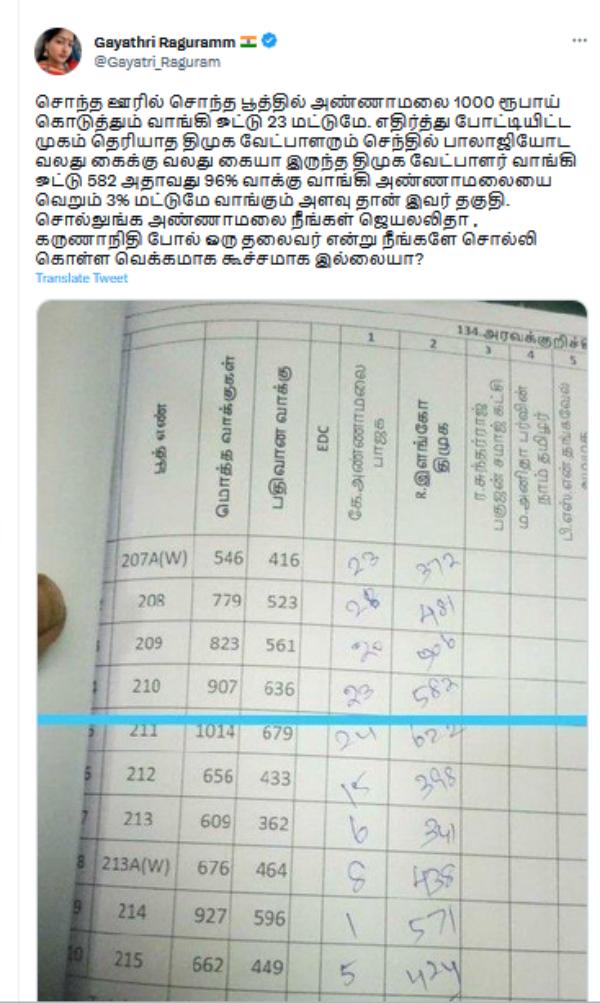 Gayathri Raguramm
@Gayatri_Raguram
சொந்த ஊரில் சொந்த பூத்தில் அண்ணாமலை 1000 ரூபாய்
கொடுத்தும் வாங்கி ஓட்டு 23 மட்டுமே. எதிர்த்து போட்டியிட்ட
முகம் தெரியாத திமுக வேட்பாளரும் செந்தில் பாலாஜியோட
வலது கைக்கு வலது கையா இருந்த திமுக வேட்பாளர் வாங்கி
ஓட்டு 582 அதாவது 96% வாக்கு வாங்கி அண்ணாமலையை
வெறும் 3% மட்டுமே வாங்கும் அளவு தான் இவர் தகுதி.
சொல்லுங்க அண்ணாமலை நீங்கள் ஜெயலலிதா ,
கருணாநிதி போல் ஒரு தலைவர் என்று நீங்களே சொல்லி
கொள்ள வெக்கமாக கூச்சமாக இல்லையா?
Translate Tweet
134.அரவக்குறிச்
1 2 3 4 5
பூத் எண்
மொத்த வாக்குகள்
பதிவான வாக்கு
EDC
கே.அண்ணாமலை
பாஜக
R.இளங்கோ
திமுக
ர.சுந்தர்ராஜ்
பகுஜன் சமாஜ் கட்சி
ம.அனிதா பர்வின்
நாம் தமிழர்
பி.எஸ்.என்.தங்கவேல்
207A(W) 546 416 23 372
208 779 523 28 481
209 823 561
210 907 636 23 582
5 211 1014 679 24 622
6 212 656 433 15 398
7 213 609 362 6 341
8 213A(W) 676 464 8 438
9 214 927 596 1 571
10 215 662 449 5 424